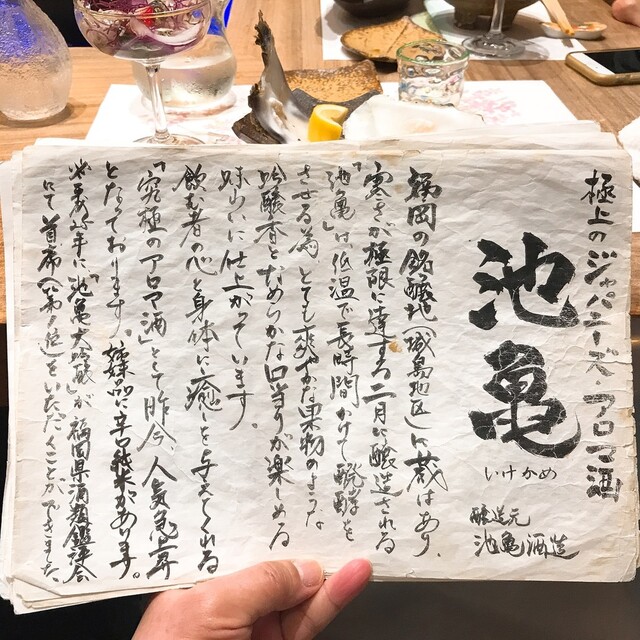 極上のジャパニーズ・アロマ酒
池亀
いけかめ
醸造元
池亀酒造
福岡の銘醸地(城島地区)に蔵はあり、
寒さが極限に達する二月に醸造される
「池亀」は、低温で長時間かけて醗酵を
させる為、とても爽やかな果物のような
吟醸香となめらかな口当りが楽しめる
味わいに仕上がっています。
飲む者の心と身体に癒しを与えてくれる
「究極のアロマ酒」として昨今、人気急上昇
となっております。姉妹品に辛口純米があります。
「池亀大吟醸」が福岡県酒類鑑評会
にて首席(第1位)をいただくことができました。